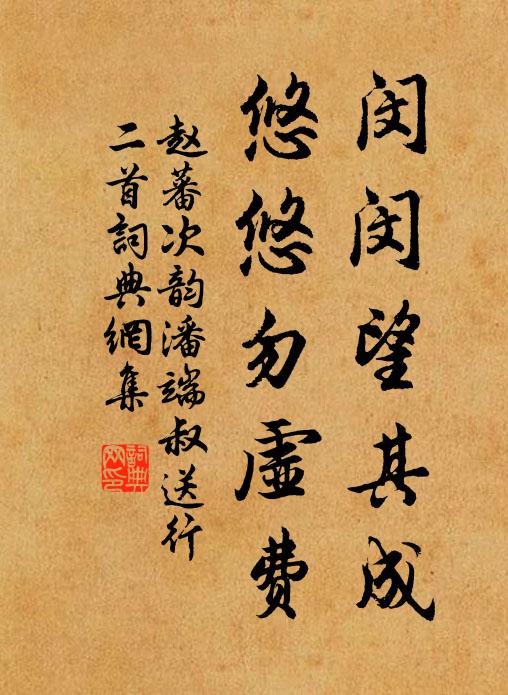 闵闵望其成
悠悠勿虚费
赵蕃次韵潘端叔送行
二首詞典網集
詞典
网印